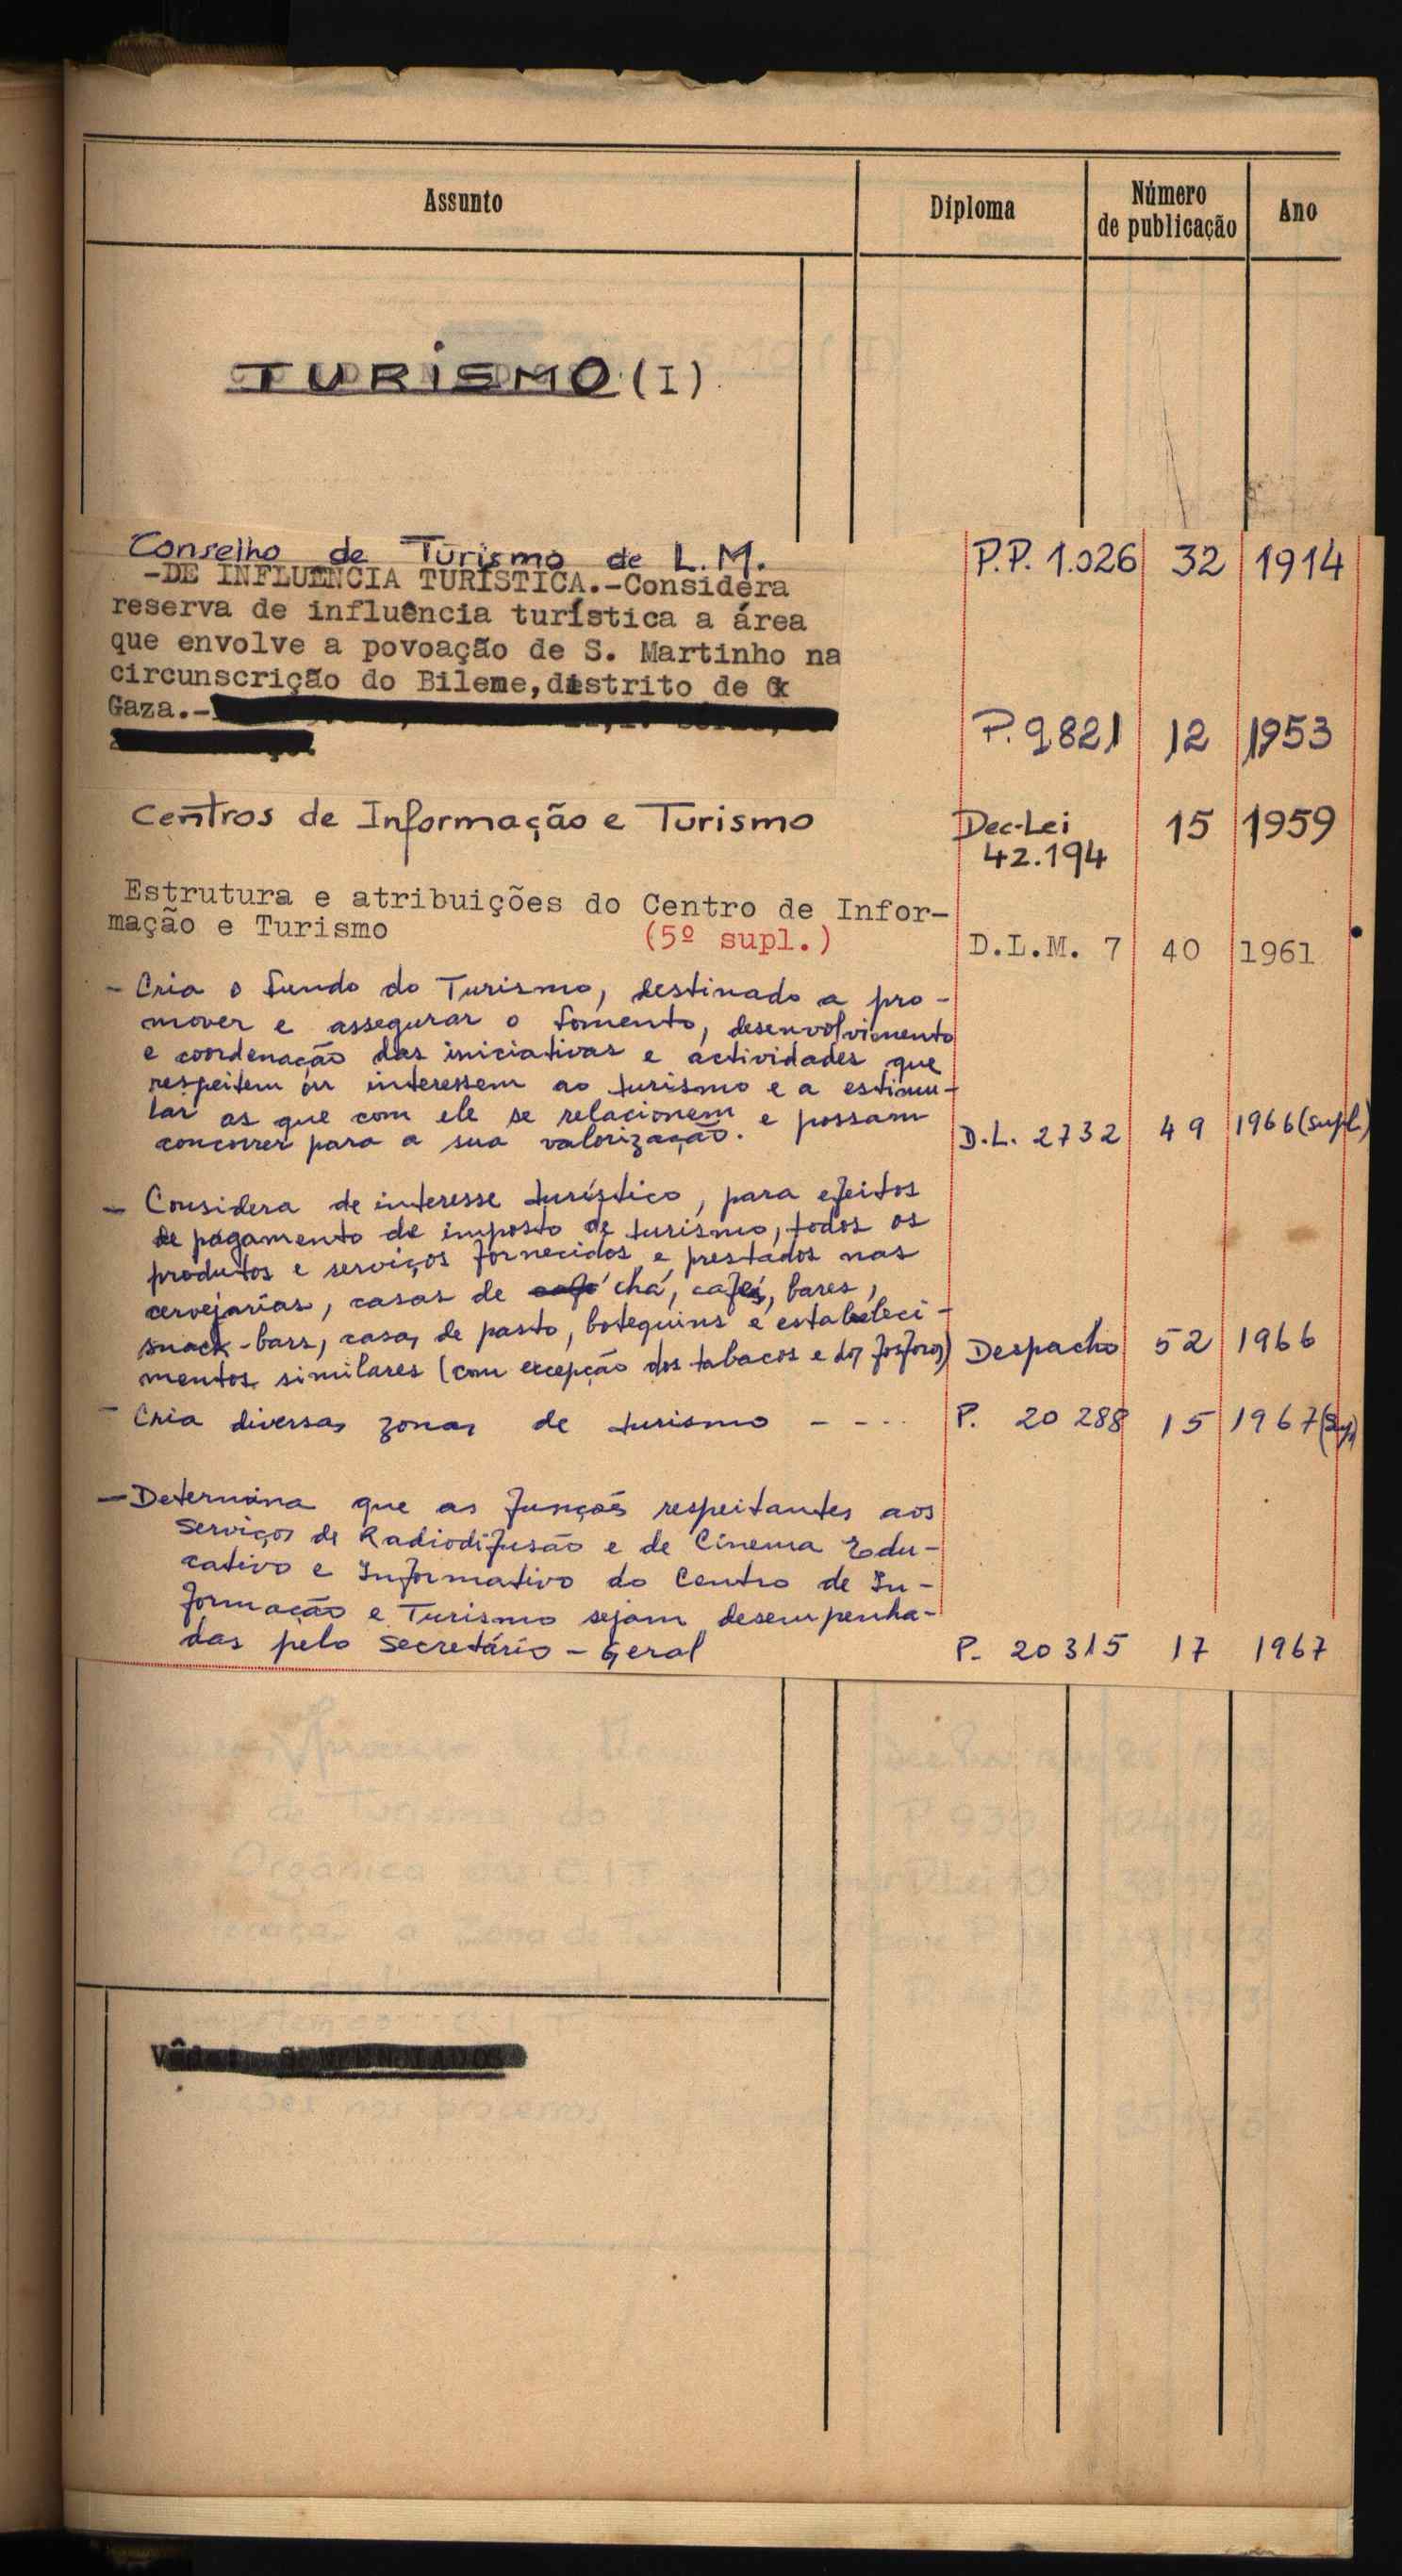 Assunto Diploma Número de publicação Ano
TURISMO (I)
Conselho de Turismo de L.M. P.P. 1.026 32 1914
-DE INFLUENCIA TURÍSTICA.-Considera
reserva de influência turística a área
que envolve a povoação de S. Martinho na
circunscrição do Bilene, distrito de
Gaza.-
P. 9821 12 1953
Centros de Informação e Turismo Dec-Lei 15 1959
42.194
Estrutura e atribuições do Centro de Infor-
mação e Turismo (5º supl.) D.L.M. 7 40 1961
- Cria o fundo do Turismo, destinado a pro-
mover e assegurar o fomento, desenvolvimento
e coordenação das iniciativas e actividades que
respeitem ou interessem ao turismo e a estimu-
lar as que com ele se relacionem e possam
concorrer para a sua valorização. D.L. 2732 49 1966 (supl.)
- Considera de interesse turístico, para efeitos
de pagamento de imposto de turismo, todos os
produtos e serviços fornecidos e prestados nas
cervejarias, casas de chá, cafés, bares,
snack-bars, casas de pasto, botequins e estabeleci-
mentos similares (com excepção dos tabacos e dos fosforos) Despacho 52 1966
- Cria diversas zonas de turismo - - - - P. 20 288 15 1967 (Sup)
- Determina que as funções respeitantes aos
Serviços de Radiodifusão e de Cinema Edu-
cativo e Informativo do Centro de In-
formação e Turismo sejam desempenha-
das pelo Secretário-Geral P. 20315 17 1967